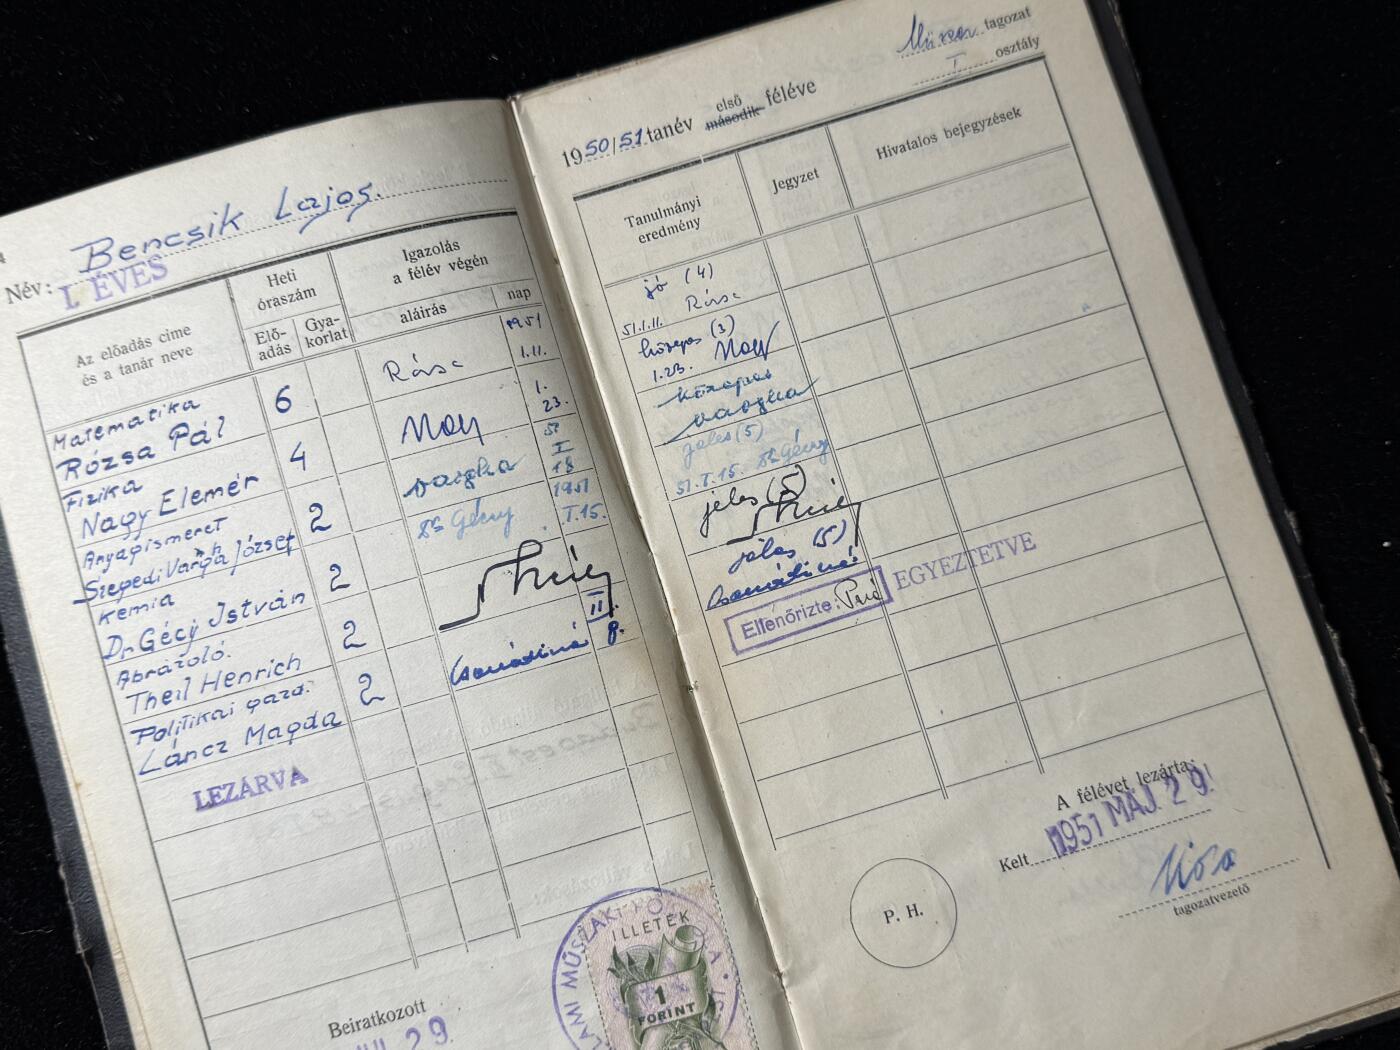 Név: Bencsik Lajos.
I. ÉVES
Az előadás címe
és a tanár neve
Heti
óraszám
Elő-
adás
Gya-
korlat
Igazolás
a félév végén
aláírás
nap
Matematika
Rózsa Pál
6
1951
1.11.
Fizika
Nagy Elemér
4
Nagy
1.
23.
Anyagismeret
Szegedi Vargha József
2
Vargha
51
I
18
Kémia
Dr. Gécy István
2
Dr Gécy
1951
I.15.
Ábrázoló.
Theil Henrich
2
Politikai gazd.
Láncz Magda
2
II.
8.
LEZÁRVA
ILLETÉK
1
FORINT
Beiratkozott
29.
tagozat
I osztály
1950/51 tanév első második féléve
Tanulmányi
eredmény
Jegyzet
Hivatalos bejegyzések
jó (4)
51.1.11.
közepes (3)
1.23. Nagy
közepes
Vargha
jeles (5)
51.I.15. Dr Gécy
jeles (5)
jeles (5)
Ellenőrizte:
EGYEZTETVE
A félévet lezárta:
Kelt 1951 MÁJ. 29.
P. H.
tagozatvezető